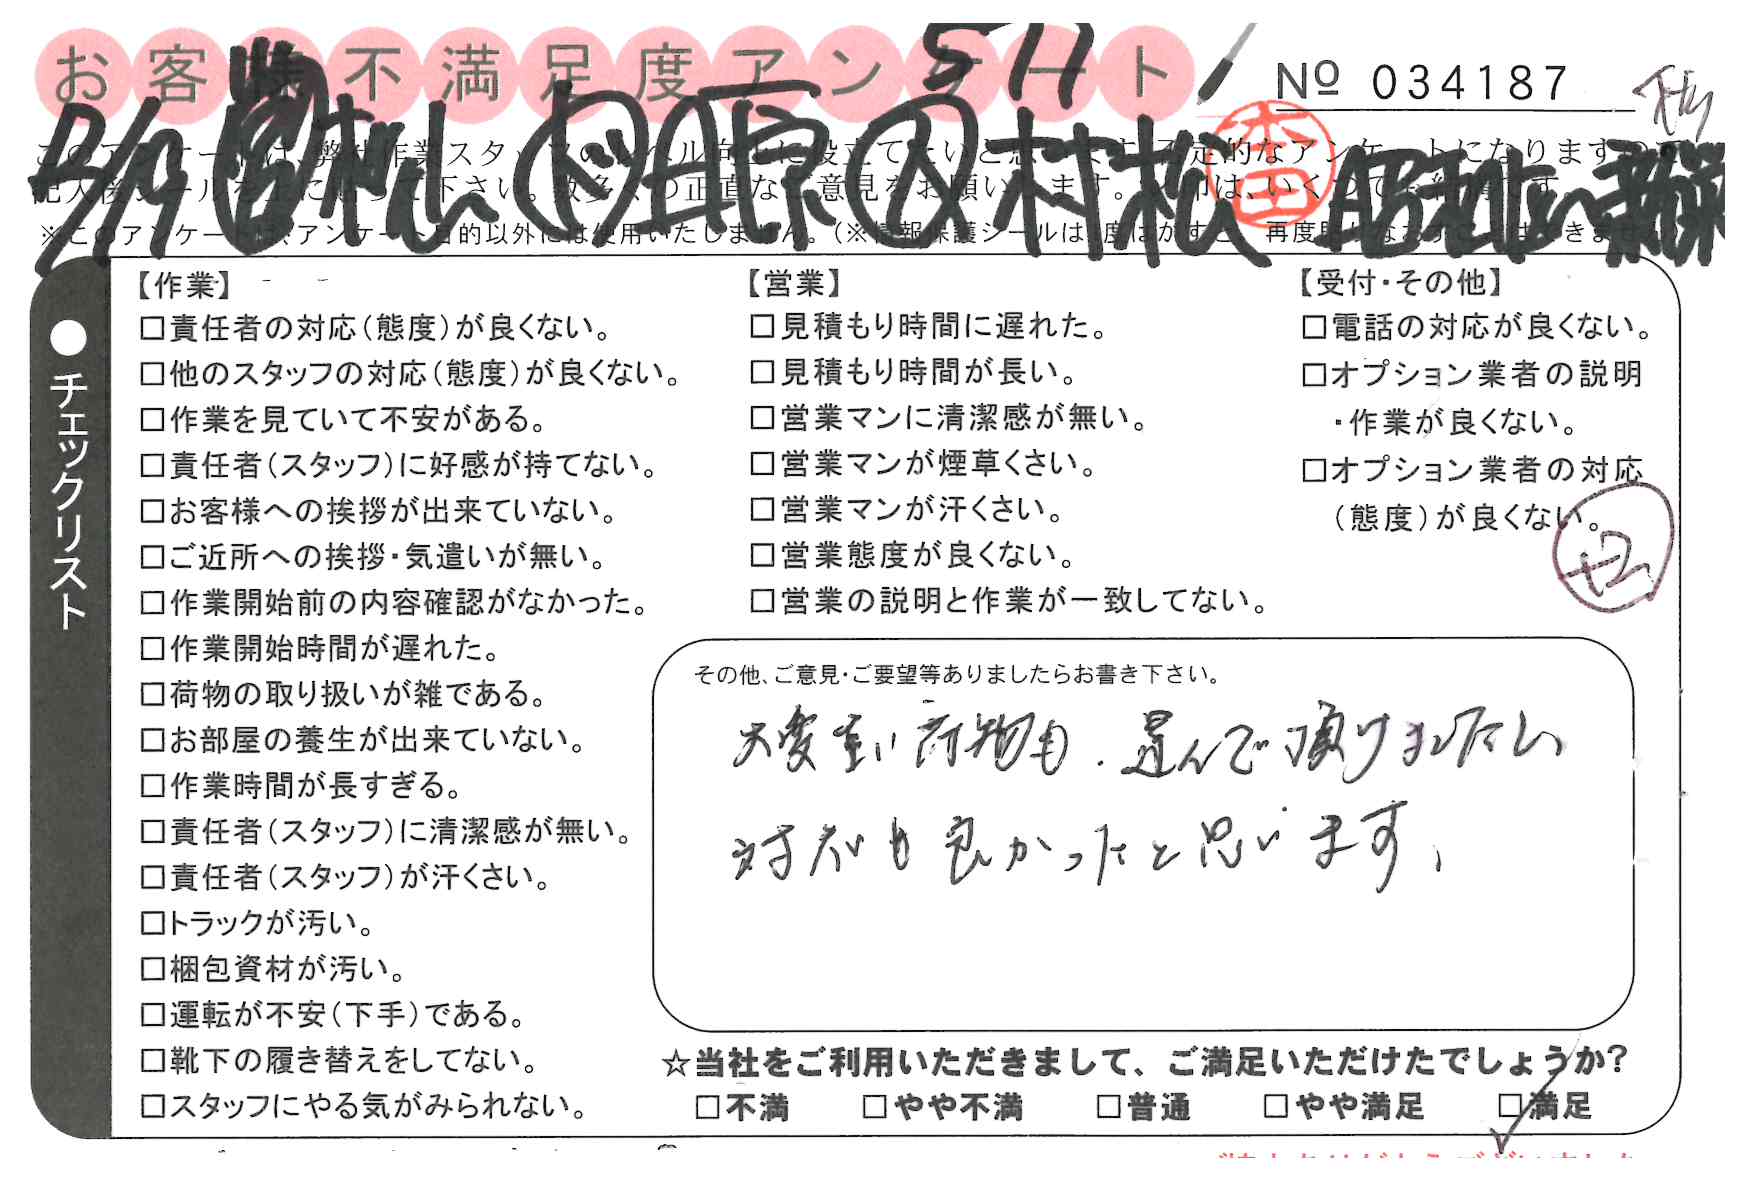 お客様不満足度アンケート
511
№ 034187
2/19 村松 ド 京 村松
このアンケートは、弊社作業スタッフのレベル向上に役立てたいと思います。不定的なアンケートになりますので
記入後シールを上に貼って下さい。数多くの正直なご意見をお願いします。
※このアンケートは、アンケート目的以外には使用いたしません。(※情報保護シールは1度はがすと、再度貼りなおすことはできません。)
●チェックリスト
【作業】
□責任者の対応(態度)が良くない。
□他のスタッフの対応(態度)が良くない。
□作業を見ていて不安がある。
□責任者(スタッフ)に好感が持てない。
□お客様への挨拶が出来ていない。
□ご近所への挨拶・気遣いが無い。
□作業開始前の内容確認がなかった。
□作業開始時間が遅れた。
□荷物の取り扱いが雑である。
□お部屋の養生が出来ていない。
□作業時間が長すぎる。
□責任者(スタッフ)に清潔感が無い。
□責任者(スタッフ)が汗くさい。
□トラックが汚い。
□梱包資材が汚い。
□運転が不安(下手)である。
□靴下の履き替えをしてない。
□スタッフにやる気がみられない。
【営業】
□見積もり時間に遅れた。
□見積もり時間が長い。
□営業マンに清潔感が無い。
□営業マンが煙草くさい。
□営業マンが汗くさい。
□営業態度が良くない。
□営業の説明と作業が一致してない。
【受付・その他】
□電話の対応が良くない。
□オプション業者の説明
・作業が良くない。
□オプション業者の対応
(態度)が良くない。
その他、ご意見・ご要望等ありましたらお書き下さい。
大変重い荷物も、運んで頂けましたし
対応も良かったと思います。
☆当社をご利用いただきまして、ご満足いただけたでしょうか?
□不満 □やや不満 □普通 □やや満足 □満足